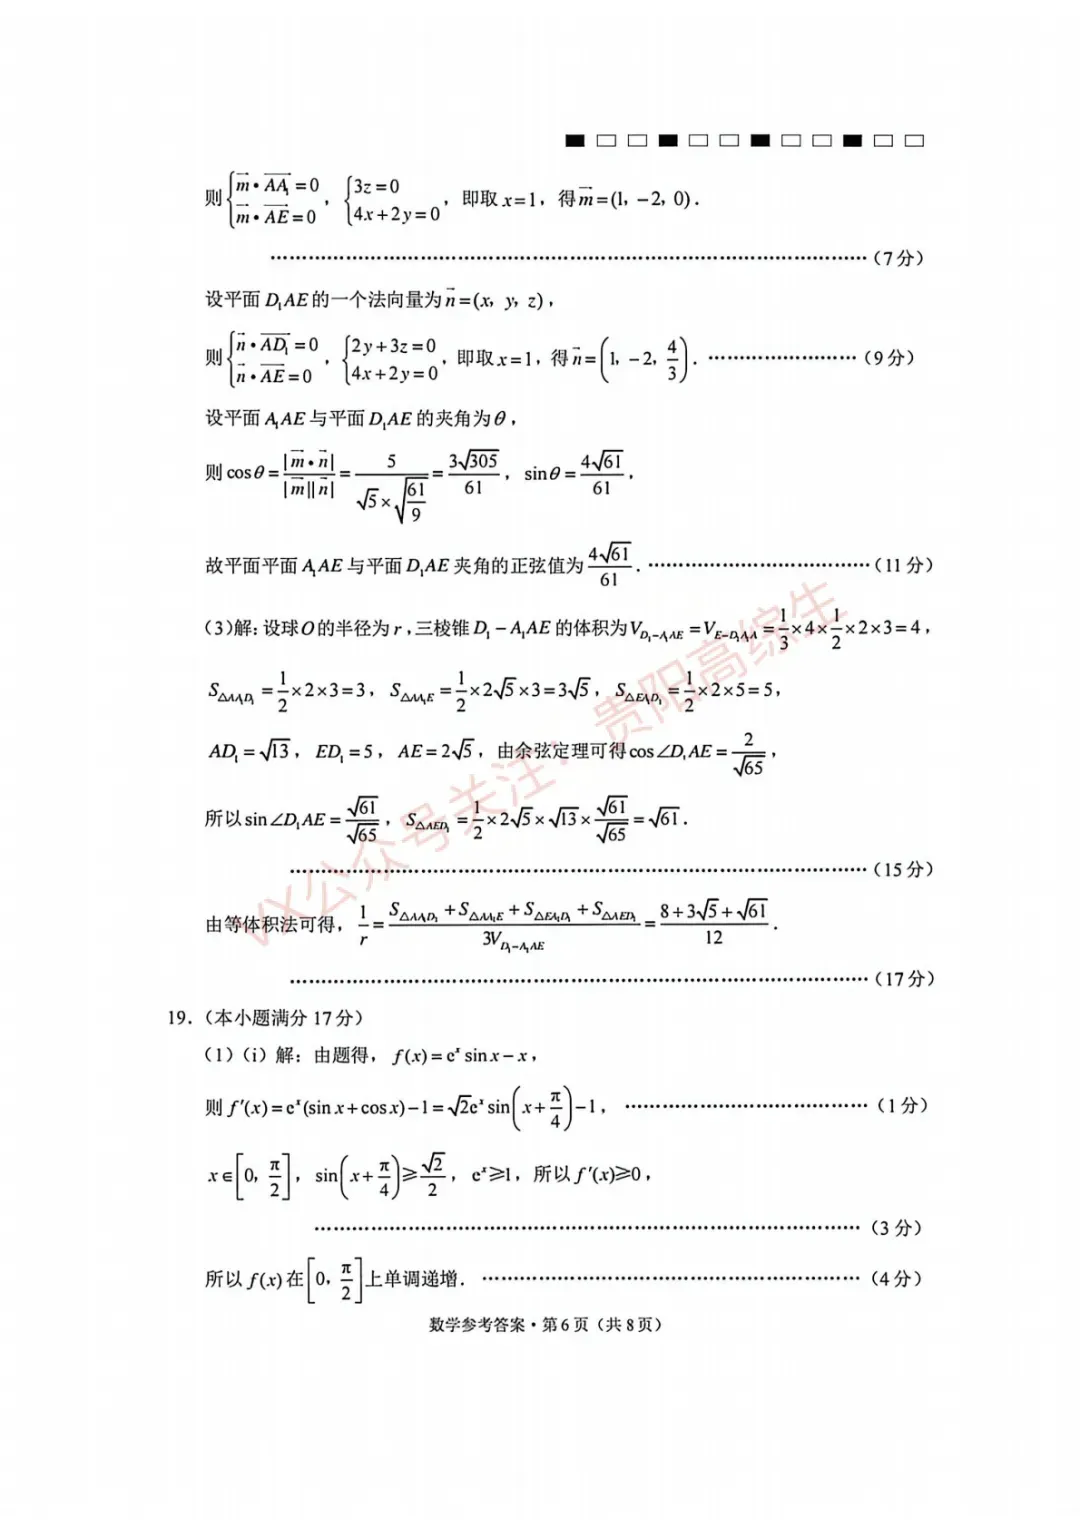 则{m⃗·AA₁⃗=0, m⃗·AE⃗=0, {3z=0, 4x+2y=0, 即取x=1，得m⃗=(1，-2，0)．
……（7分）
设平面D₁AE的一个法向量为n⃗=(x，y，z)，
则{n⃗·AD₁⃗=0, n⃗·AE⃗=0, {2y+3z=0, 4x+2y=0, 即取x=1，得n⃗=(1，-2，4/3)．……（9分）
设平面A₁AE与平面D₁AE的夹角为θ，
则cosθ=|m⃗·n⃗|/|m⃗||n⃗|=5/(√5×√(61/9))=3√305/61，sinθ=4√61/61，
故平面平面A₁AE与平面D₁AE夹角的正弦值为4√61/61．……（11分）
(3)解：设球O的半径为r，三棱锥D₁-A₁AE的体积为V_{D₁-A₁AE}=V_{E-D₁A₁A}=1/3×4×1/2×2×3=4，
S_{△AA₁D₁}=1/2×2×3=3，S_{△AA₁E}=1/2×2√5×3=3√5，S_{△EA₁D₁}=1/2×2×5=5，
AD₁=√13，ED₁=5，AE=2√5，由余弦定理可得cos∠D₁AE=2/√65，
所以sin∠D₁AE=√61/√65，S_{△AED₁}=1/2×2√5×√13×√61/√65=√61．
……（15分）
由等体积法可得，1/r=(S_{△AA₁D₁}+S_{△AA₁E}+S_{△EA₁D₁}+S_{△AED₁})/3V_{D₁-A₁AE}=(8+3√5+√61)/12．
……（17分）
19．（本小题满分17分）
（1）（i）解：由题得，f(x)=eˣsinx-x，
则f′(x)=eˣ(sinx+cosx)-1=√2eˣsin(x+π/4)-1，……（1分）
x∈[0，π/2]，sin(x+π/4)≥√2/2，eˣ≥1，所以f′(x)≥0，
……（3分）
所以f(x)在[0，π/2]上单调递增．……（4分）
数学参考答案·第6页（共8页）
VX公众号关注：贵阳高综生